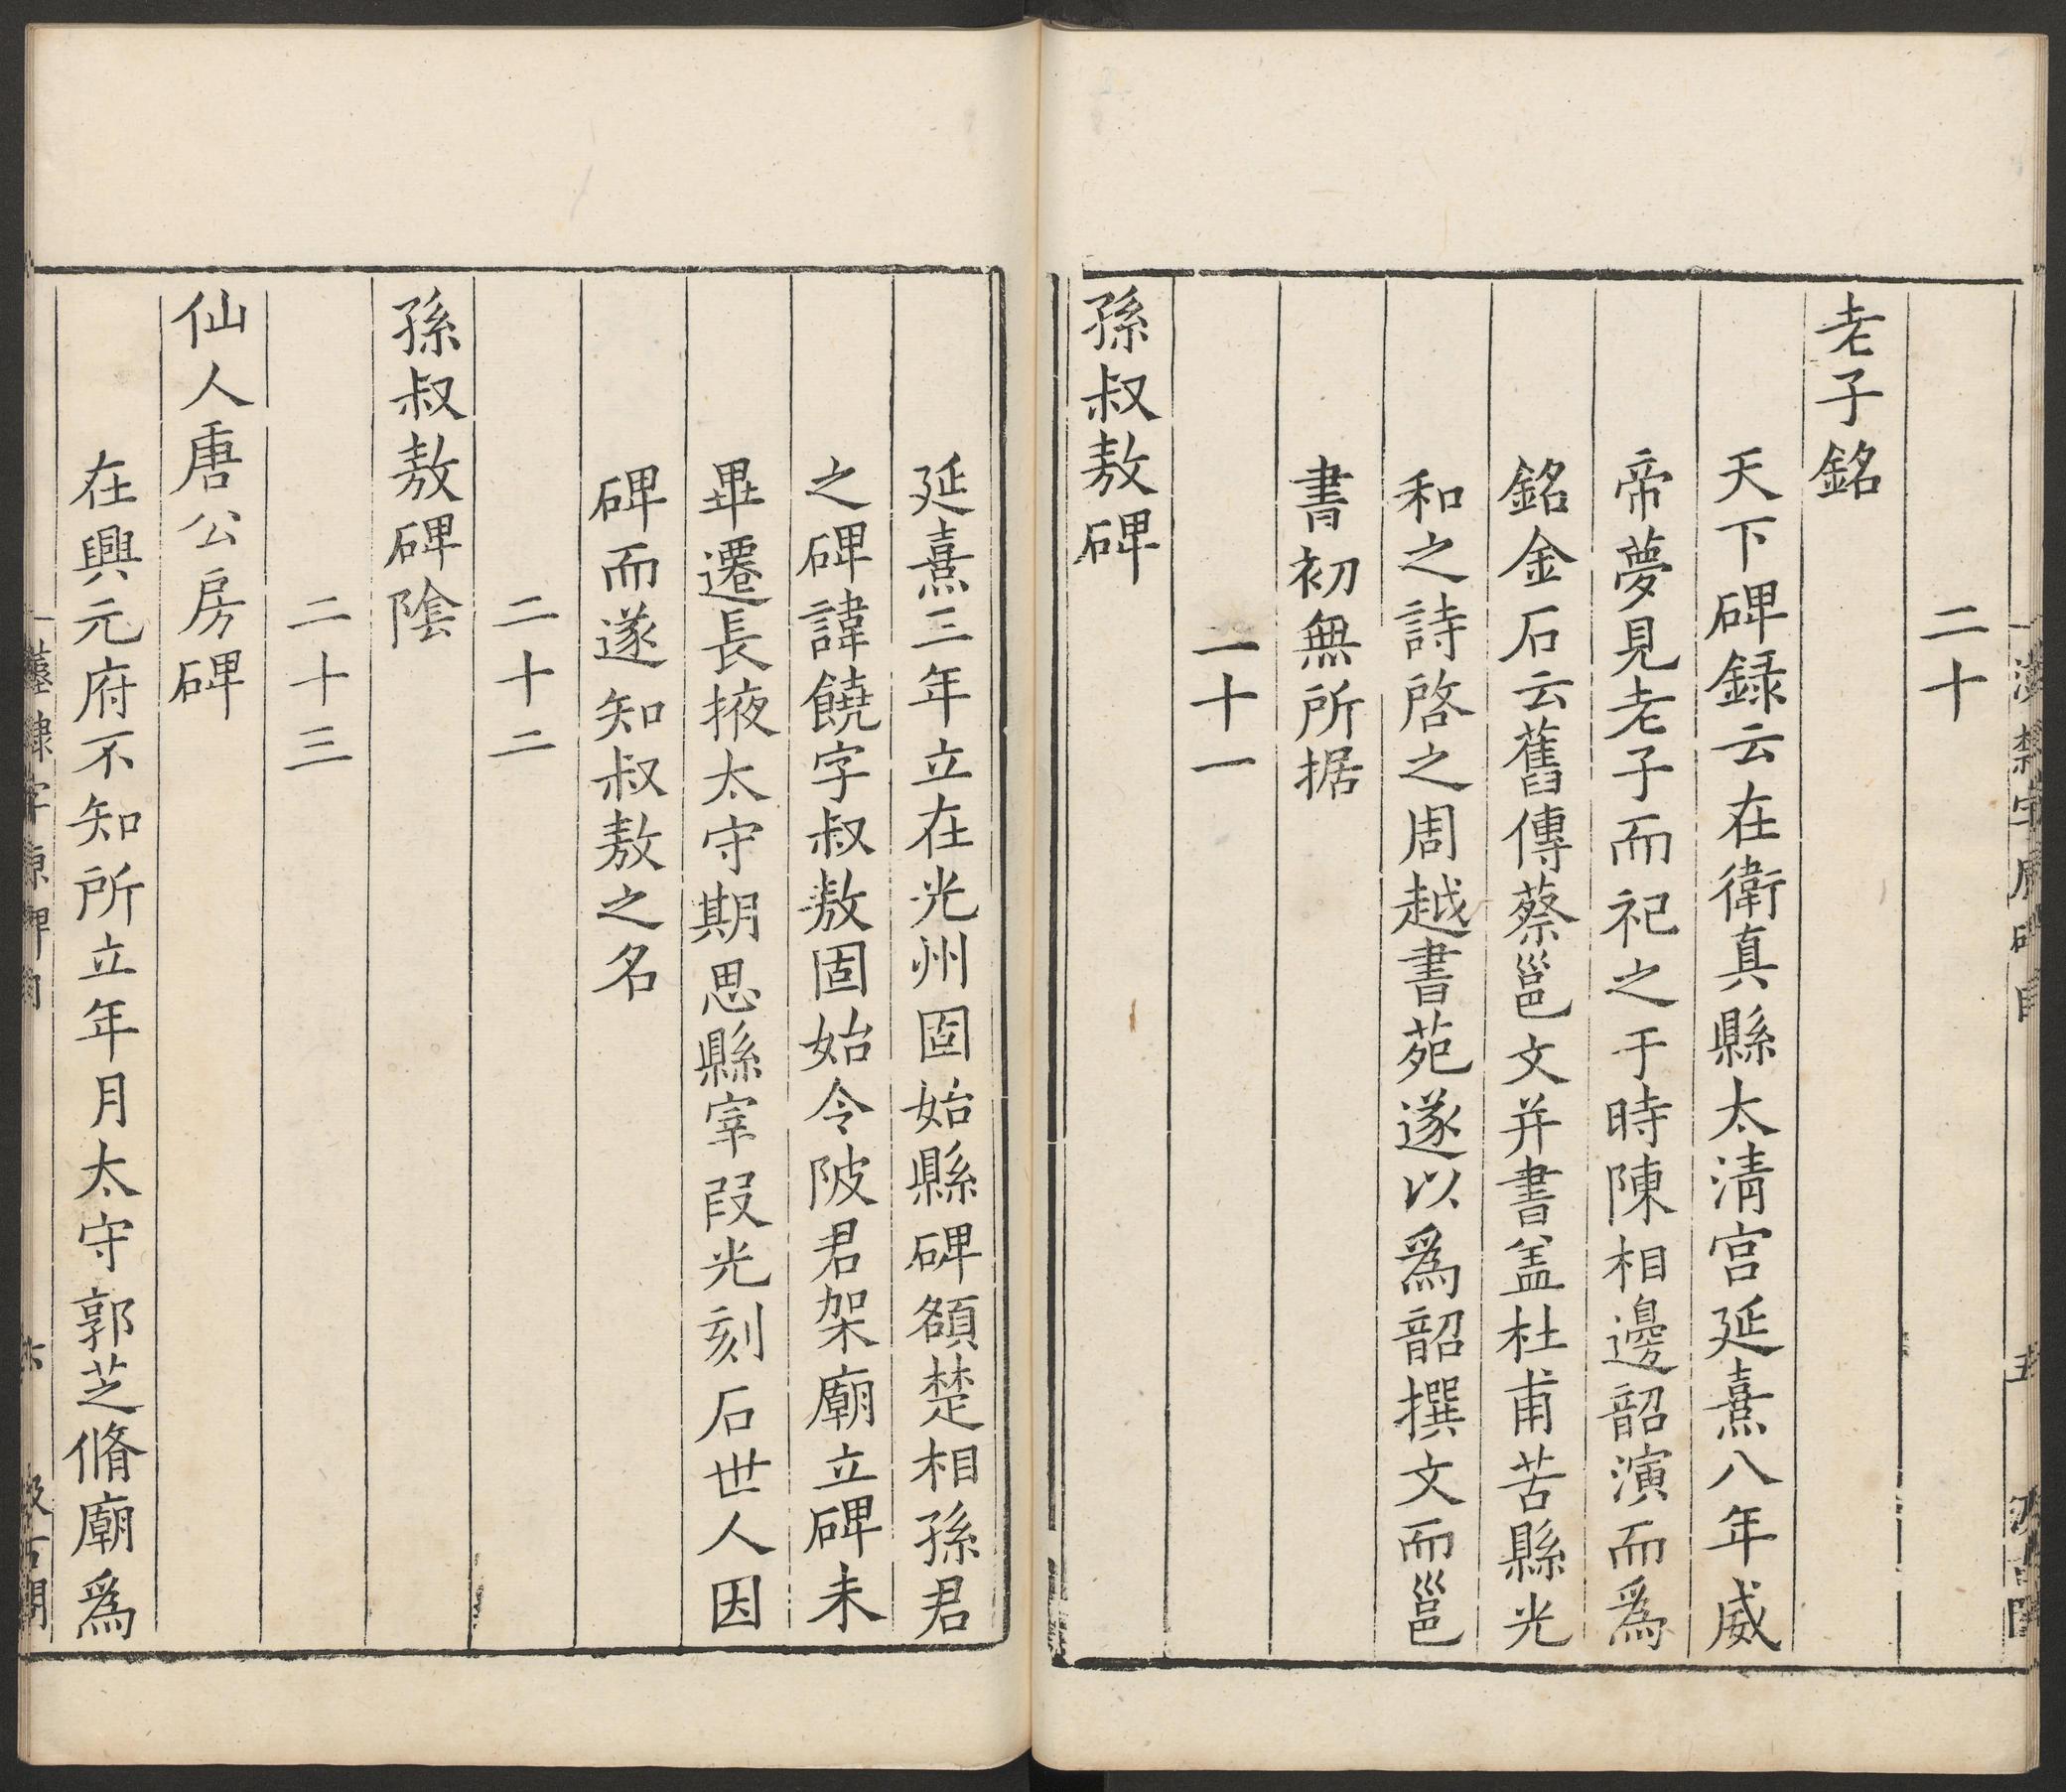 二十
老子銘
天下碑録云在衛真縣太清宮延熹八年威
帝夢見老子而祀之于時陳相邊韶演而爲
銘金石云舊傳蔡邕文并書盖杜甫苦縣光
和之詩啓之周越書苑遂以爲韶撰文而邕
書初無所据
二十一
孫叔敖碑
延熹三年立在光州固始縣碑額楚相孫君
之碑諱饒字叔敖固始令陂君架廟立碑未
畢遷長掖太守期思縣宰叚光刻石世人因
碑而遂知叔敖之名
二十二
孫叔敖碑陰
二十三
仙人唐公房碑
在興元府不知所立年月太守郭芝脩廟爲